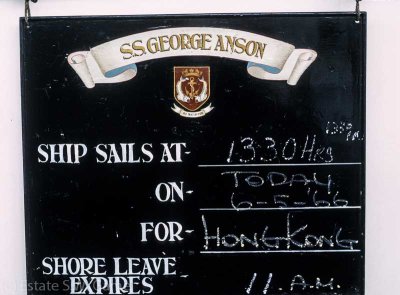 S.S. GEORGE ANSON
SHIP SAILS AT- 1330 Hrs
ON- TODAY
6-5-66
FOR- HONGKONG
SHORE LEAVE
EXPIRES 11. A.M.